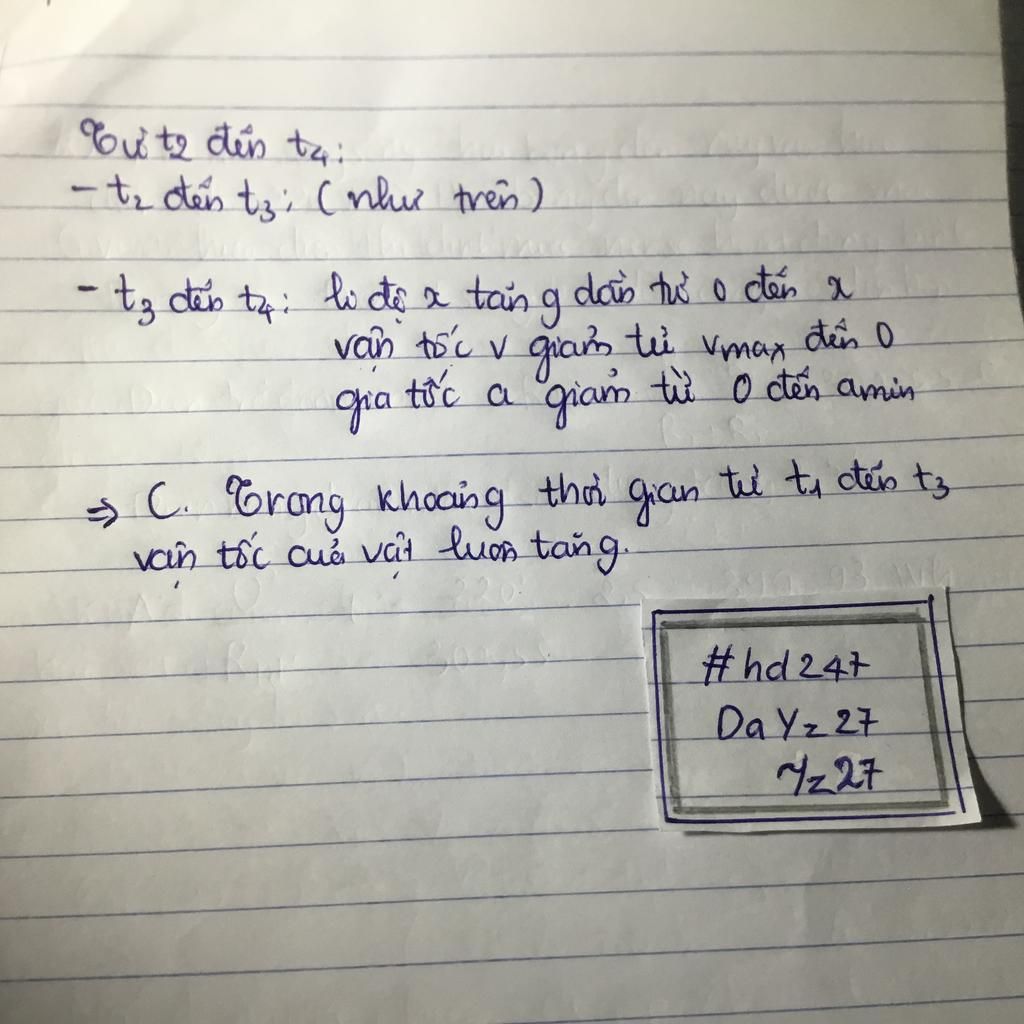 Từ t2 đến t4:
- t2 đến t3: (như trên)
- t3 đến t4: li độ x tăng dần từ 0 đến x
vận tốc v giảm từ vmax đến 0
gia tốc a giảm từ 0 đến amin
=> C. Trong khoảng thời gian từ t1 đến t3
vận tốc của vật luôn tăng.
#hd247
DaYz27
Yz27